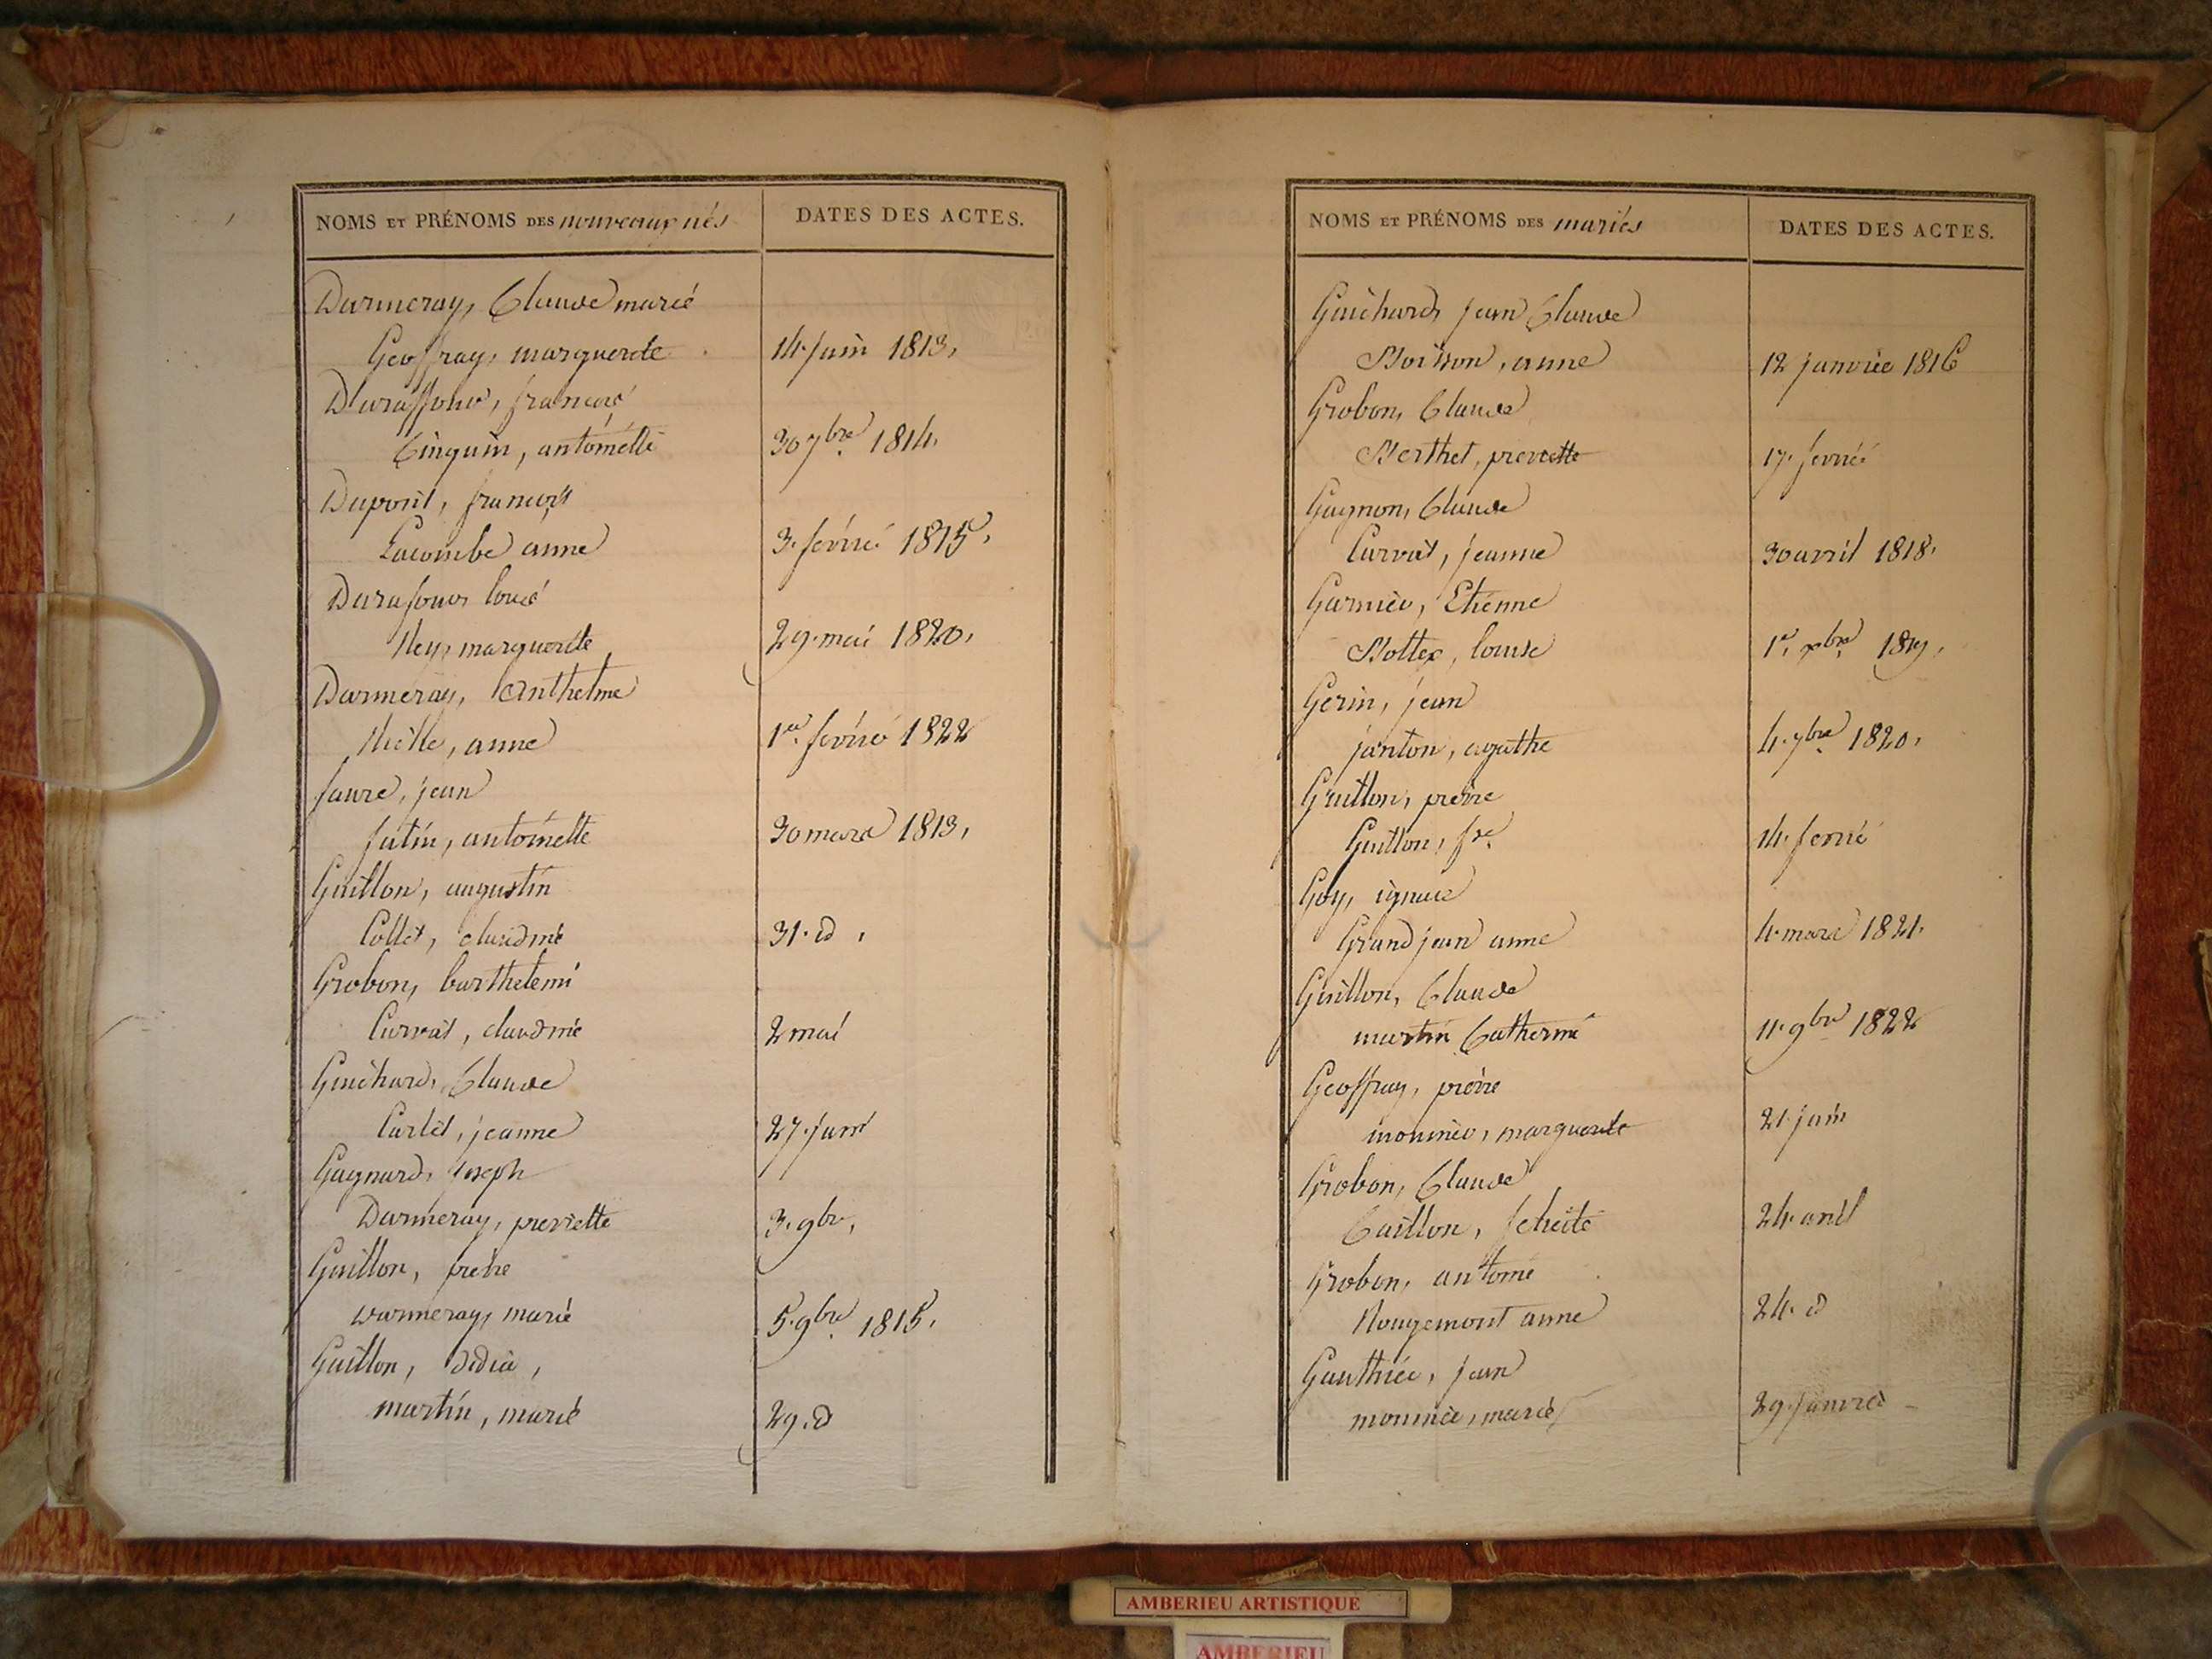 NOMS ET PRÉNOMS DES nouveaux nés DATES DES ACTES.
Darmeray, Claude marie
Geoffray, marguerite 14. juin 1813,
Durafour, francois
Cinquin, antoinette 30 7bre 1814.
Dupont, francois
Lacombe anne 3. fevrier 1815,
Durafour, louis
Rey, marguerite 29. mai 1820,
Darmeray, Anthelme
anne 1er fevrier 1822
faure, jean
Jutin, antoinette 30 mars 1813,
Guillon, augustin
Collet, claudine 31. d ,
Grobon, barthelemi
Curvat, claudine 2 mai
Guichard, Claude
Carlet, jeanne 27. juin
Gagnard, Joseph
Darmeray, pierrette 3. 9bre,
Guillon, pierre
Darmeray, marie 5. 9bre 1815,
Guillon, Didier,
martin, marie 29. d
NOMS ET PRÉNOMS DES mariés DATES DES ACTES.
Guichard, jean Claude
Boisson, anne 12 janvier 1816
Grobon, Claude
Berthet, pierrette 17. fevrier
Gagnon, Claude
Curvat, jeanne 30 avril 1818.
Garnier, Etienne
Bottex, louise 1er xbre 1819,
Gerin, jean
janton, agathe 4. 7bre 1820,
Guillon, pierre
Guillon, fse 14. fevrier
Goy, ignace
Grandjean anne 4. mars 1821.
Guillon, Claude
martin Catherine 11. 9bre 1822
Geoffray, pierre
monnier, marguerite 21. juin
Grobon, Claude
Caillon, felicité 24. avril
Grobon, antoine
Rougemont anne 24. d
Gauthier, jean
monnier, marie 29. janvier
AMBERIEU ARTISTIQUE
AMBERIEU